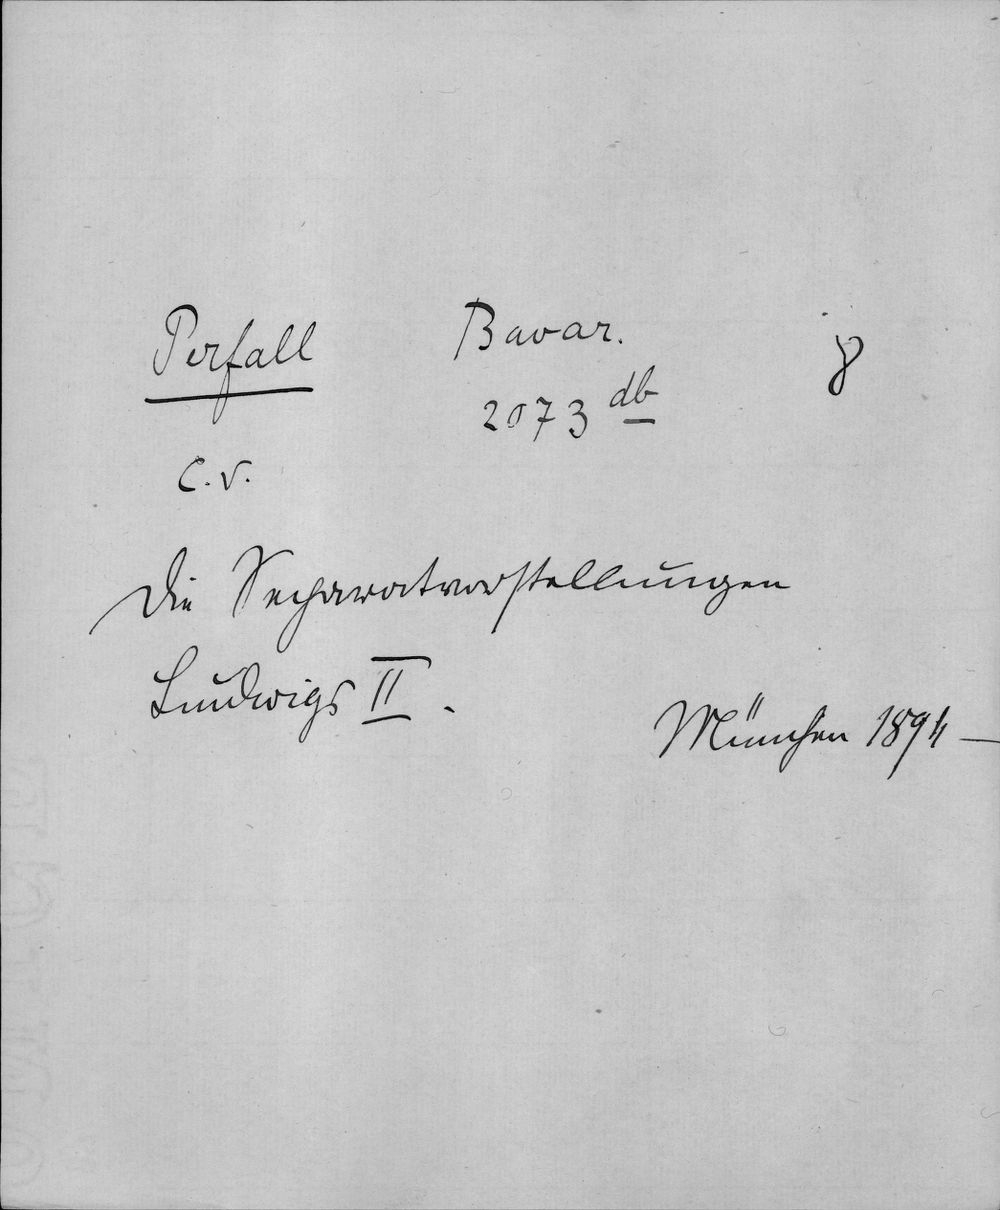 Perfall
Bavar.
8
2073 db
C. v.
Die Separatvorstellungen
Ludwigs II.
München 1894 —